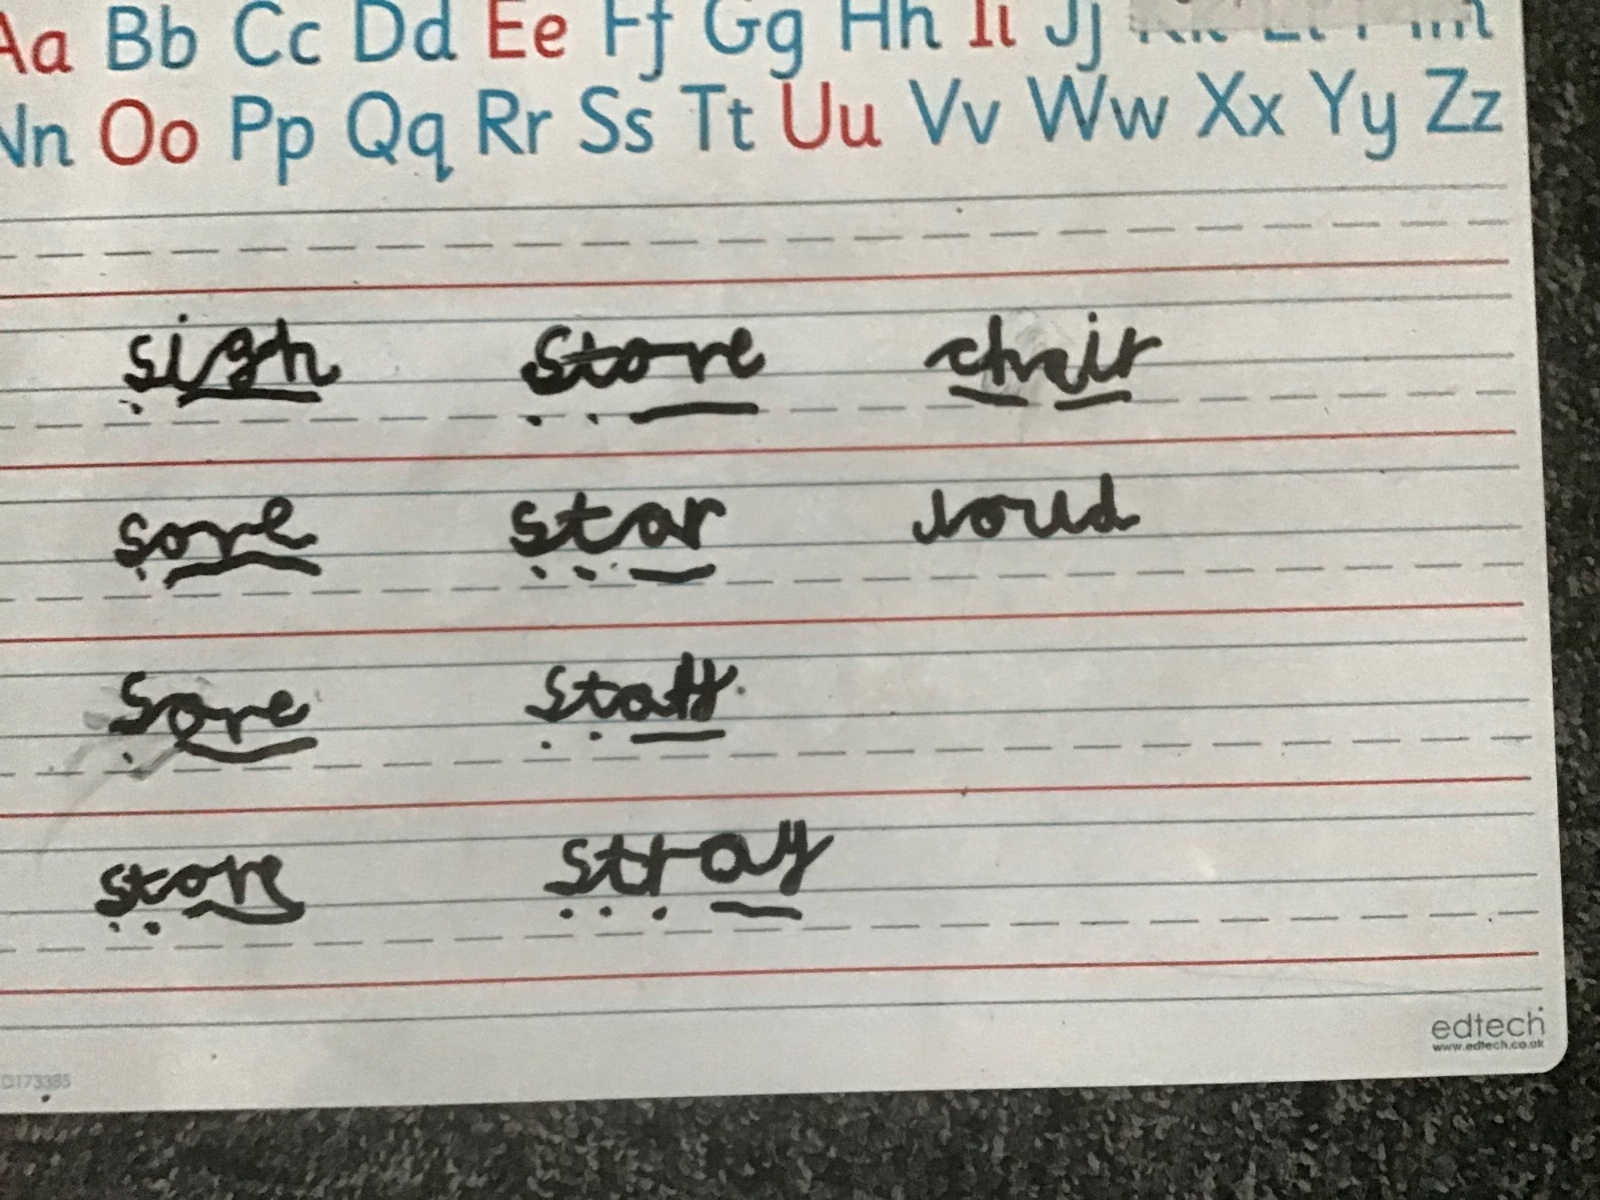 Aa Bb Cc Dd Ee Ff Gg Hh Ii Jj
Nn Oo Pp Qq Rr Ss Tt Uu Vv Ww Xx Yy Zz
sigh store chair
sore star
sore
store stray
edtech
www.edtech.co.uk